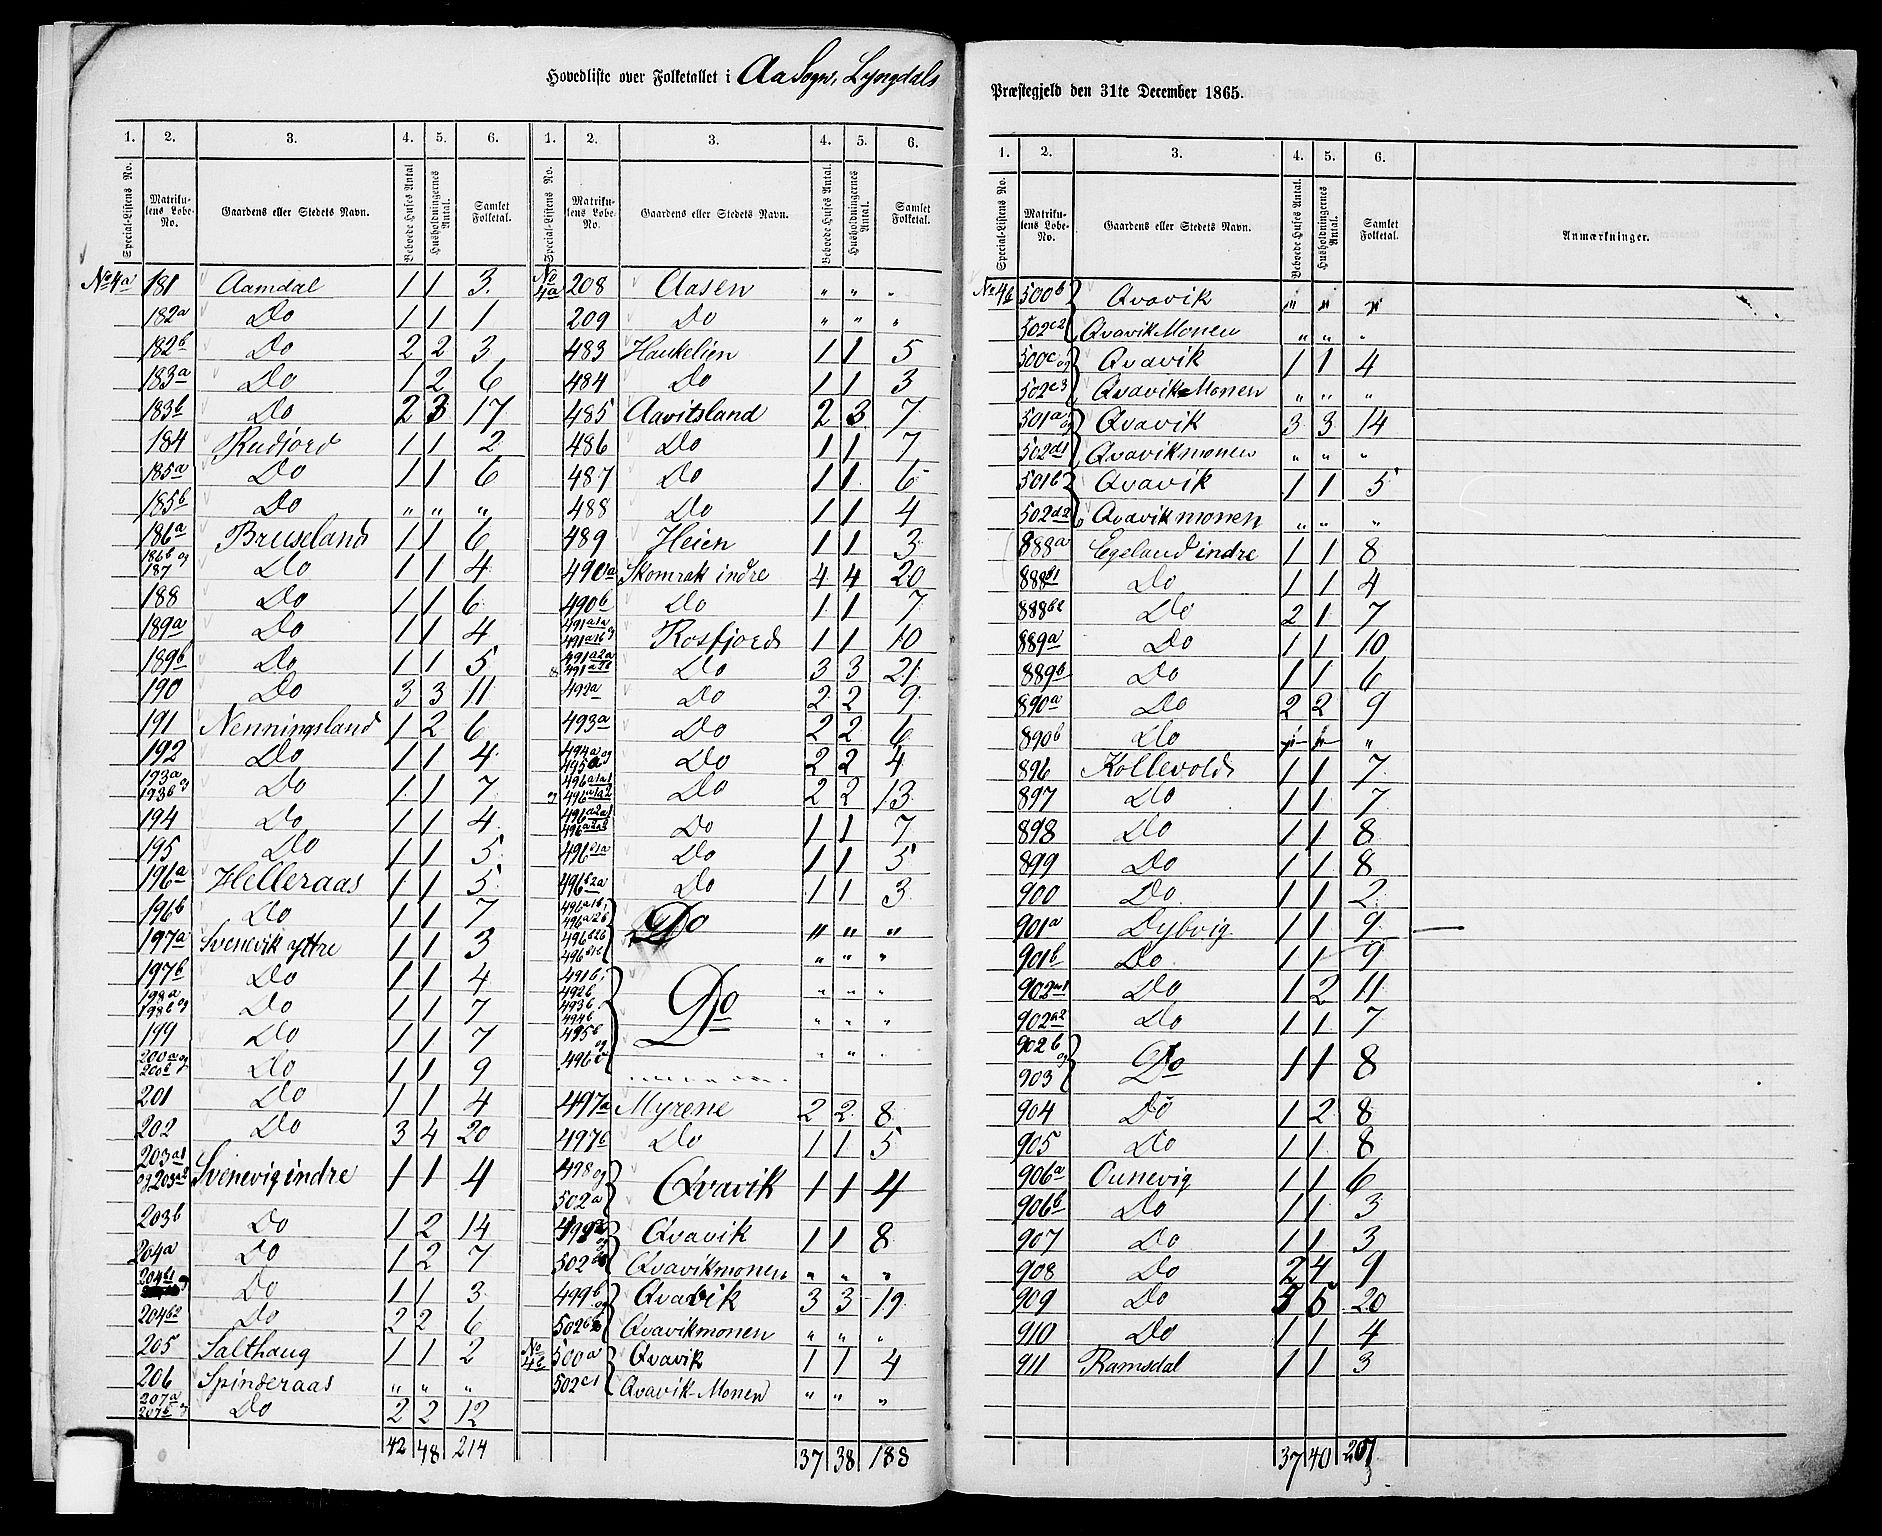 Hovedliste over Folketallet i Aa Sogn, Lyngdals
1. 2. 3. 4. 5. 6. 1. 2. 3. 4. 5. 6.
Special-Listens No. Matrikulens Løbe-No. Gaardens eller Stedets Navn. Beboede Huses Antal Husholdningernes Antal. Samlet Folketal. Special-Listens No. Matrikulens Løbe-No. Gaardens eller Stedets Navn. Beboede Huses Antal. Husholdningernes Antal. Samlet Folketal.
No 4a 181 Aamdal 1 1 3
182a Do 1 1 1
182b Do 2 2 3
183a Do 1 2 6
183b Do 2 3 17
184 Rudjord 1 1 2
185a Do 1 1 6
185b Do " " "
186a Bruseland 1 1 6
186b og 187 Do 1 1 4
188 Do 1 1 6
189a Do 1 1 4
189b Do 1 1 5
190 Do 3 3 11
191 Nenningsland 1 2 6
192 Do 1 1 4
193a 193b og Do 1 1 7
194 Do 1 1 4
195 Do 1 1 5
196a Helleraas 1 1 5
196b Do 1 1 7
197a Svenevik yttre 1 1 3
197b Do 1 1 4
198a 198b og Do 1 1 7
199 Do 1 1 7
200a og 200b Do 1 1 9
201 Do 1 1 4
202 Do 3 4 20
203a1 og 203a2 Svenevig indre 1 1 4
203b Do 1 2 14
204a Do 1 2 7
204b1 og Do 1 1 3
204b2 Do 2 2 6
205 Salthaug 1 1 2
206 Spinderaas " " "
207a 207b og Do 2 2 12
42 48 214
No 4a 208 Aasen " " "
209 Do " " "
483 Haukelien 1 1 5
484 Do 1 1 3
485 Aavitsland 2 3 7
486 Do 1 1 7
487 Do 1 1 6
488 Do 1 1 4
489 Heien 1 1 3
490a Skomrak indre 4 4 20
490b Do 1 1 7
491a1a 491a1b og Rosfjord 1 1 10
491a2a Do 3 3 21
492a Do 2 2 9
493a Do 2 2 6
494a og 495a Do 2 2 4
496a1a1 og 496a1a2 Do 2 2 13
496a2a1 496a2a2 Do 1 1 7
496b1a Do 1 1 5
496b2a Do 1 1 3
496a1b, 496a2b Do " " "
496b2b 496b1b " " "
491b, 492b " " "
493b 494b Do " " "
495b og 496c " " "
497a Myrene 2 2 8
497b Do 1 1 5
498 og 502a Qvavik 1 1 4
499a og Qvavik 1 1 8
502 Qvavikmonen " " "
499b og Qvavik 3 3 19
502b2 Qvavikmonen " " "
No 4b 500a Qvavik 1 1 4
502c1 Qvavik-Monen " " "
37 38 188
Præstegjeld den 31te December 1865.
1. 2. 3. 4. 5. 6.
Special-Listens No. Matrikulens Løbe-No. Gaardens eller Stedets Navn. Beboede Huses Antal. Husholdningernes Antal. Samlet Folketal. Anmærkninger.
No 4b 500b Qvavik " " "
502c2 Qvavik Monen " " "
500c og Qvavik 1 1 4
502c3 Qvavik-Monen " " "
501a og Qvavik 3 3 14
502d1 Qvavikmonen " " "
501b Qvavik 1 1 5
502d2 Qvavikmonen " " "
888a Egeland indre 1 1 8
888b1 Do 1 1 4
888b2 Do 2 1 7
889a Do 1 1 10
889b Do 1 1 6
890a Do 2 2 9
890b Do " " "
896 Kollevold 1 1 7
897 Do 1 1 7
898 Do 1 1 8
899 Do 1 1 8
900 Do 1 1 2
901a Dybvig 1 1 9
901b Do 1 1 9
902a1 Do 1 2 11
902a2 Do 1 1 7
902b og 903 Do 1 1 8
904 Do 1 2 8
905 Do 1 1 8
906a Ounevig 1 1 6
906b Do 1 1 3
907 Do 1 1 3
908 Do 2 4 9
909 Do 5 5 20
910 Do 1 1 4
911 Ramsdal 1 1 3
37 40 207